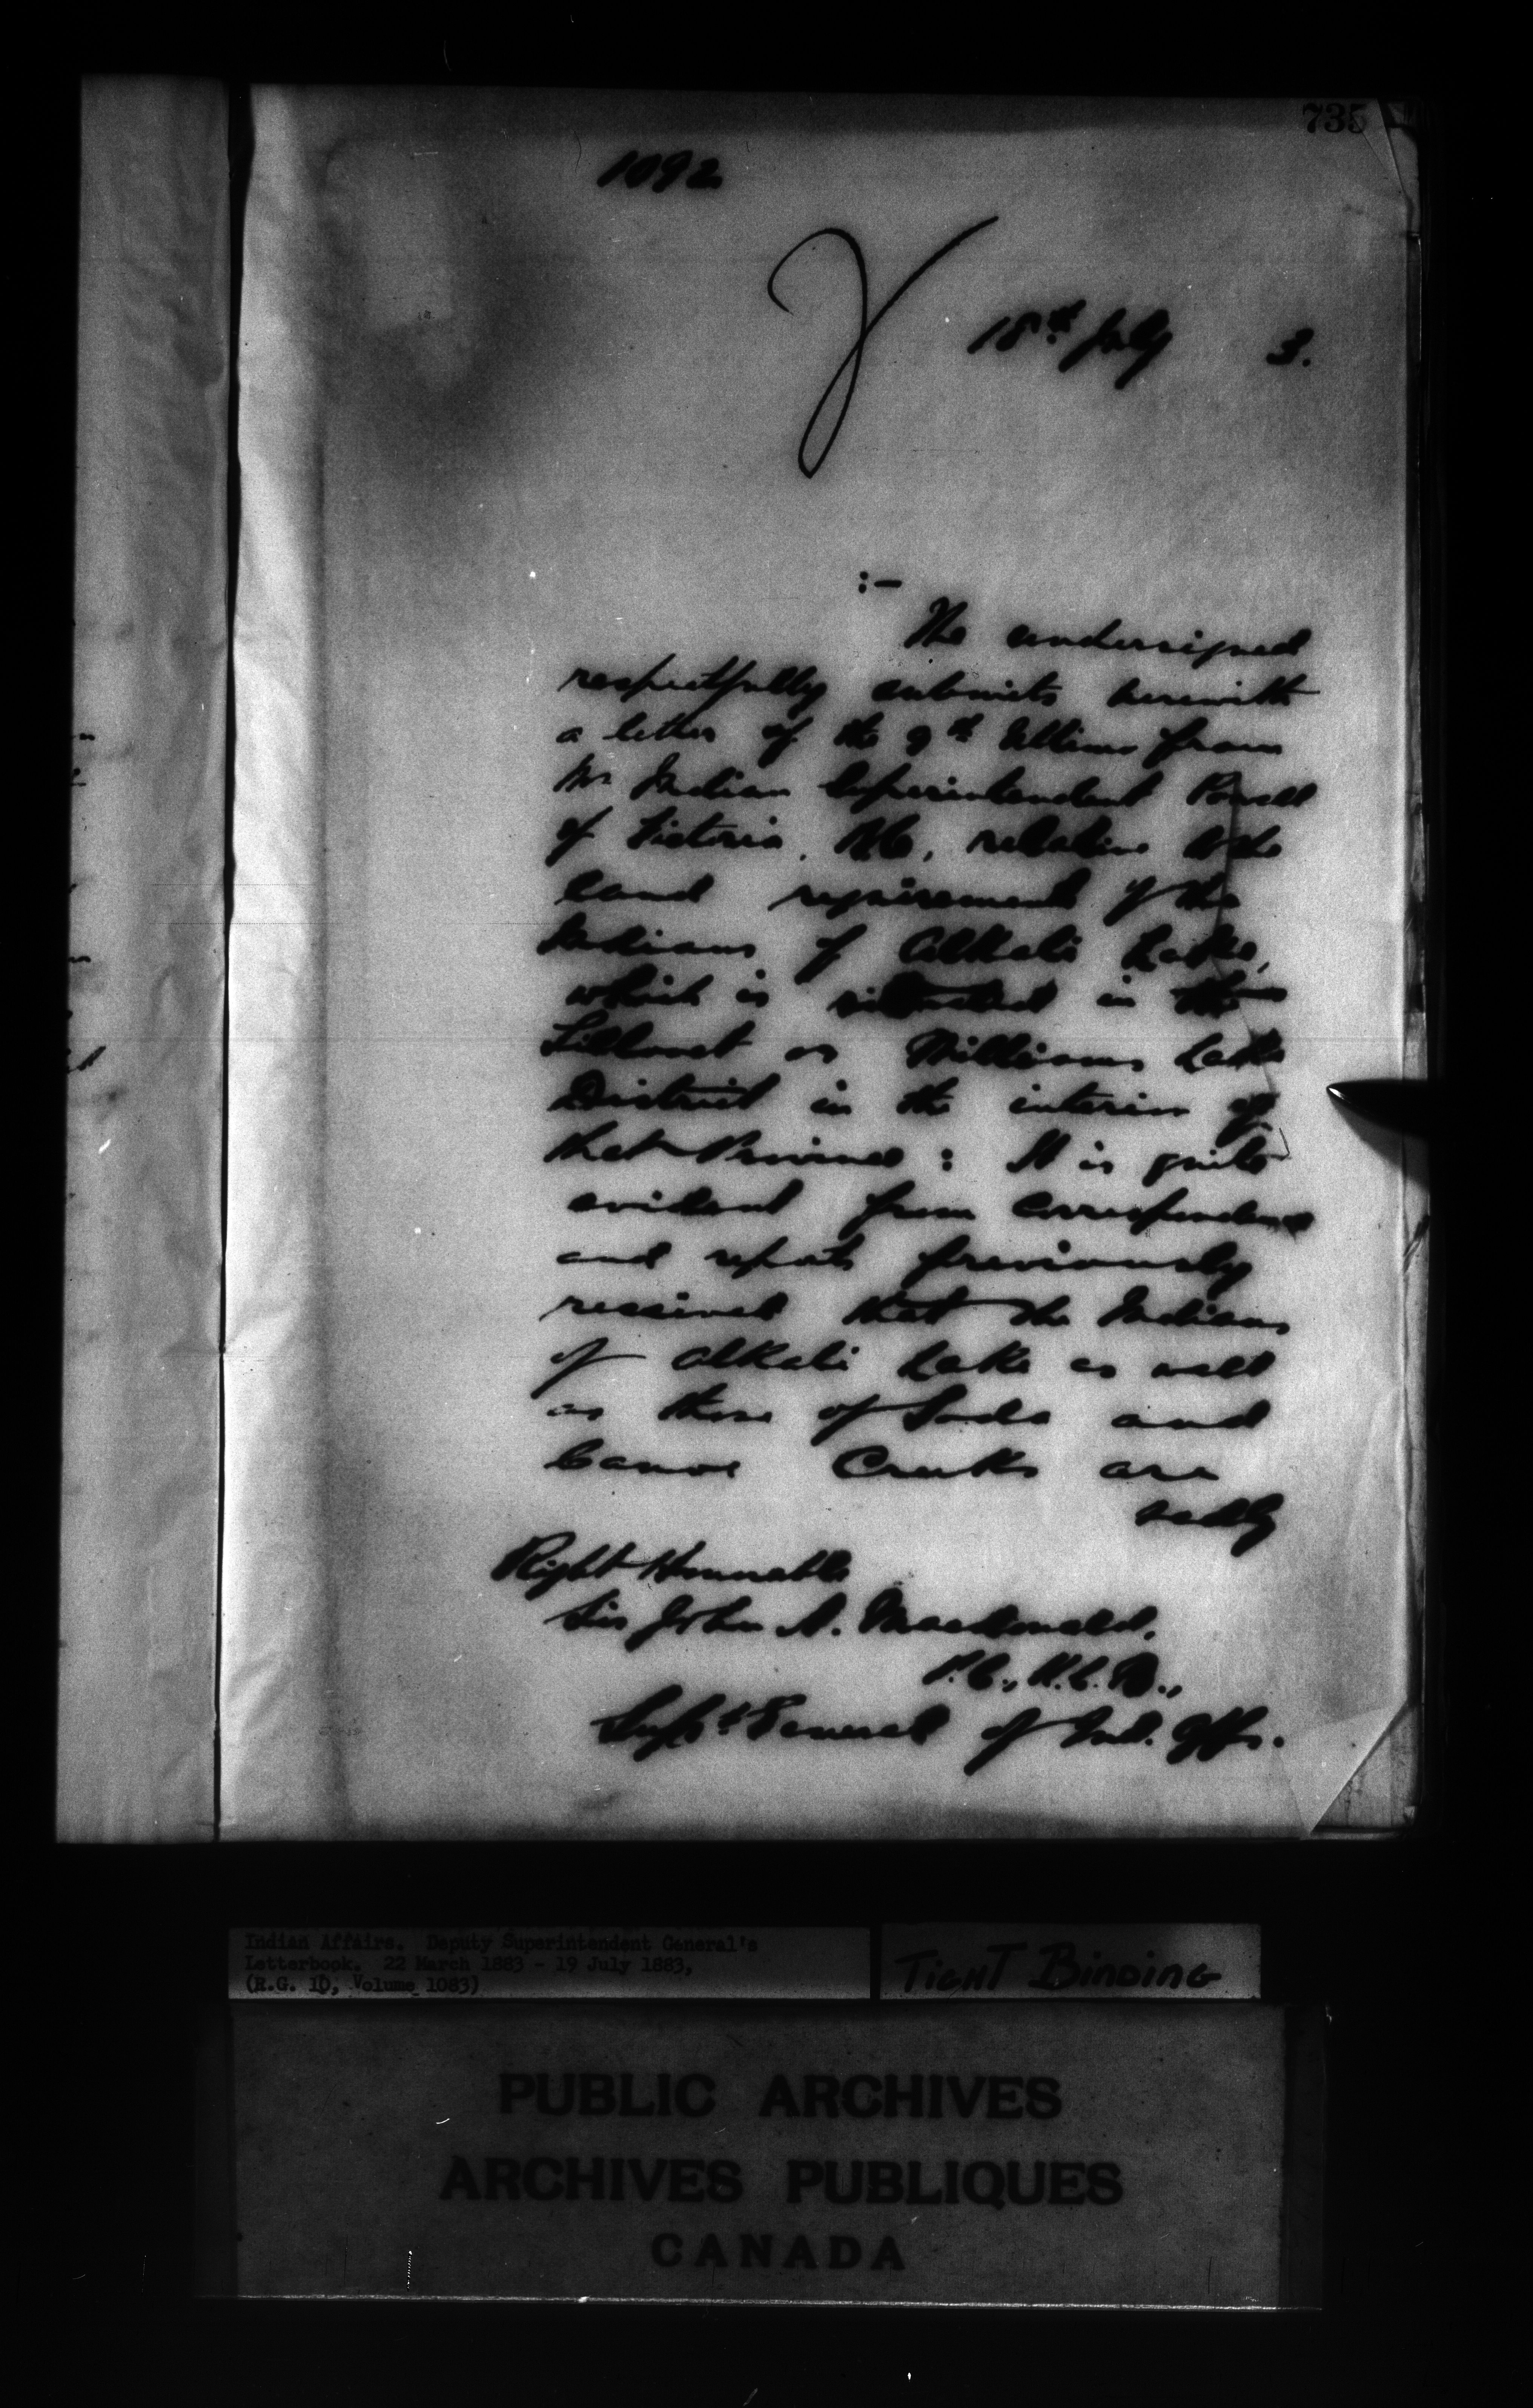 735
1092
18th July 3.
:-
The undersigned
respectfully submits herewith
a letter of the 9th Ultimo from
Mr Indian Superintendent Powell
of Victoria, B.C., relative to the
land requirements of the
Indians of Alkali Lake,
which is situated in the
Lillooet or Williams Lake
District in the interior of
that Province : It is quite
evident from correspondence
and reports previously
received that the Indians
of Alkali Lake as well
as those of Soda and
Canoe Creeks are
really
Right Honourable
Sir John A. Macdonald,
P.C., K.C.B.,
Supt General of Ind. Affs.
Indian Affairs. Deputy Superintendent General's
Letterbook. 22 March 1883 - 19 July 1883,
(R.G. 10, Volume 1083)
TIGHT BINDING
PUBLIC ARCHIVES
ARCHIVES PUBLIQUES
CANADA